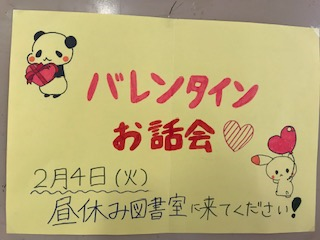 バレンタイン
お話会♡
2月4日(火)
昼休み図書室に来てください!